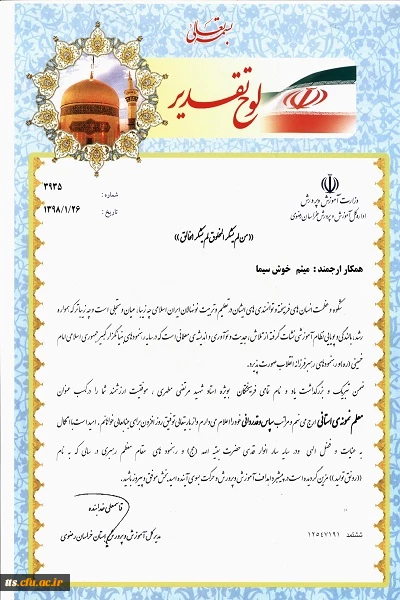 بسمه تعالی
لوح تقدیر
وزارت آموزش و پرورش
اداره کل آموزش و پرورش خراسان رضوی
شماره : ۳۹۳۵
تاریخ : ۱۳۹۸/۱/۲۶
«من لم یشکر المخلوق لم یشکر الخالق»
همکار ارجمند: میثم خوش سیما
شکوه و عظمت انسان های فرهیخته و توانمندی های ایشان در تعلیم و تربیت نونهالان ایران اسلامی چه زیبا، عیان و متجلی است و چه زیباتر که همواره
رشد، بالندگی و پویایی نظام آموزشی نشأت گرفته از تلاش، جدیت و نوآوری و اندیشه ی معلمانی است که در سایه رهنمودهای بنیانگذار کبیر جمهوری اسلامی امام
خمینی (ره) و رهنمودهای رهبر فرزانه انقلاب صورت پذیرد.
ضمن تبریک و بزرگداشت یاد و نام تمامی فرهیختگان بویژه استاد شهید مرتضی مطهری ، موفقیت ارزشمند شما را در کسب عنوان
معلم نمونه ی استانی ارج می نهم و مراتب سپاس و قدردانی خود را اعلام می دارم و از بارگاه تعالی توفیق روز افزون برای جنابعالی خواهانم . امید است با اتکال
به عنایات و فضل الهی و در سایه سار انوار قدسی حضرت بقیه الله (عج) و رهنمود های مقام معظم رهبری در سالی که به نام
«رونق تولید» مزین گردیده است در پیشبرد اهداف آموزش و پرورش و حرکت بسوی آینده امید بخش موفق و پیروز باشید.
قاسمعلی خدابنده
مدیر کل آموزش و پرورش استان خراسان رضوی
ششصد ۱۲۵۴۷۱۹۱
tts.cfu.ac.ir